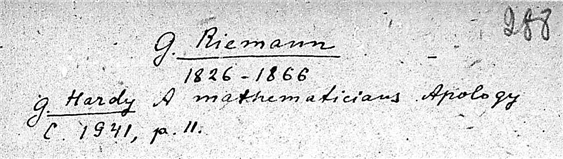 288
G. Riemann
1826-1866
G. Hardy A mathematicians Apology
C. 1941, p. 11.